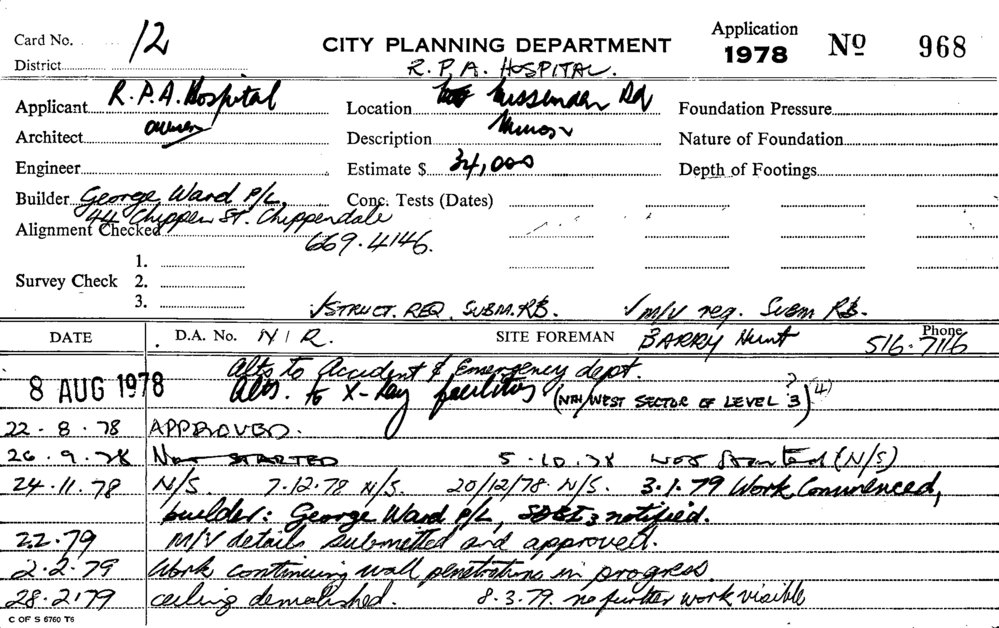 Card No. 12
CITY PLANNING DEPARTMENT
Application
1978
No 968
District
R.P.A. HOSPITAL.
Applicant R.P.A. Hospital
Location Missenden Rd
Foundation Pressure
Architect owner
Description Minor
Nature of Foundation
Engineer
Estimate $ 34,000
Depth of Footings
Builder George Ward P/L,
Conc. Tests (Dates)
44 Chippen St. Chippendale
Alignment Checked 669.4146.
1.
Survey Check 2.
3.
√STRUCT. REQ. SUBM. RB. √M/V req. Subm RB.
DATE
D.A. No. N/R.
SITE FOREMAN BARRY Hunt
Phone 516.7116
Alts to Accident & Emergency dept.
8 AUG 1978 Alts. to X-Ray facilities (NTH/WEST SECTOR OF LEVEL 3) (4)
22.8.78 APPROVED.
26.9.78 NOT STARTED 5.10.78 NOT Started (N/S)
24.11.78 N/S. 7.12.78 N/S. 20/12/78 N/S. 3.1.79 Work Commenced,
builder: George Ward P/L, notified.
2.2.79 M/V details submitted and approved.
2.2.79 Work continuing wall penetrations in progress
28.2.79 ceiling demolished. 8.3.79. no further work visible
C OF S 6760 T6